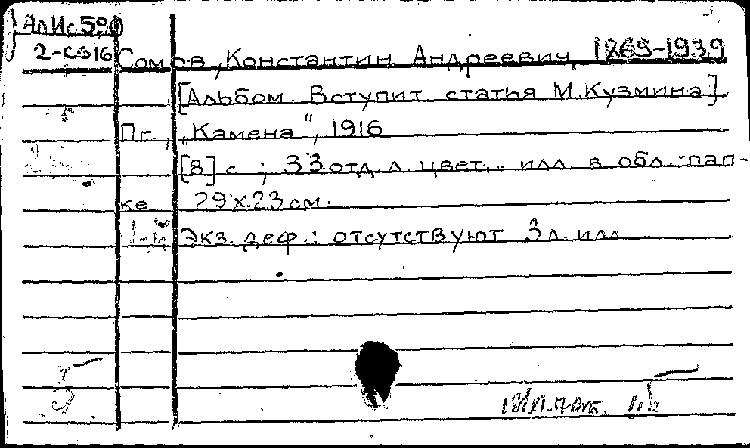 АлИс
2-С516 Сомов, Константин Андреевич, 1869-1939
[Альбом. Вступит. статья М.Кузмина].
Пг., „Камена", 1916
[8] с.; 33 отд. л. цвет. илл. в обл.-пап-
ке. 29х23 см.
Экз. деф.: отсутствуют 3 л. илл.